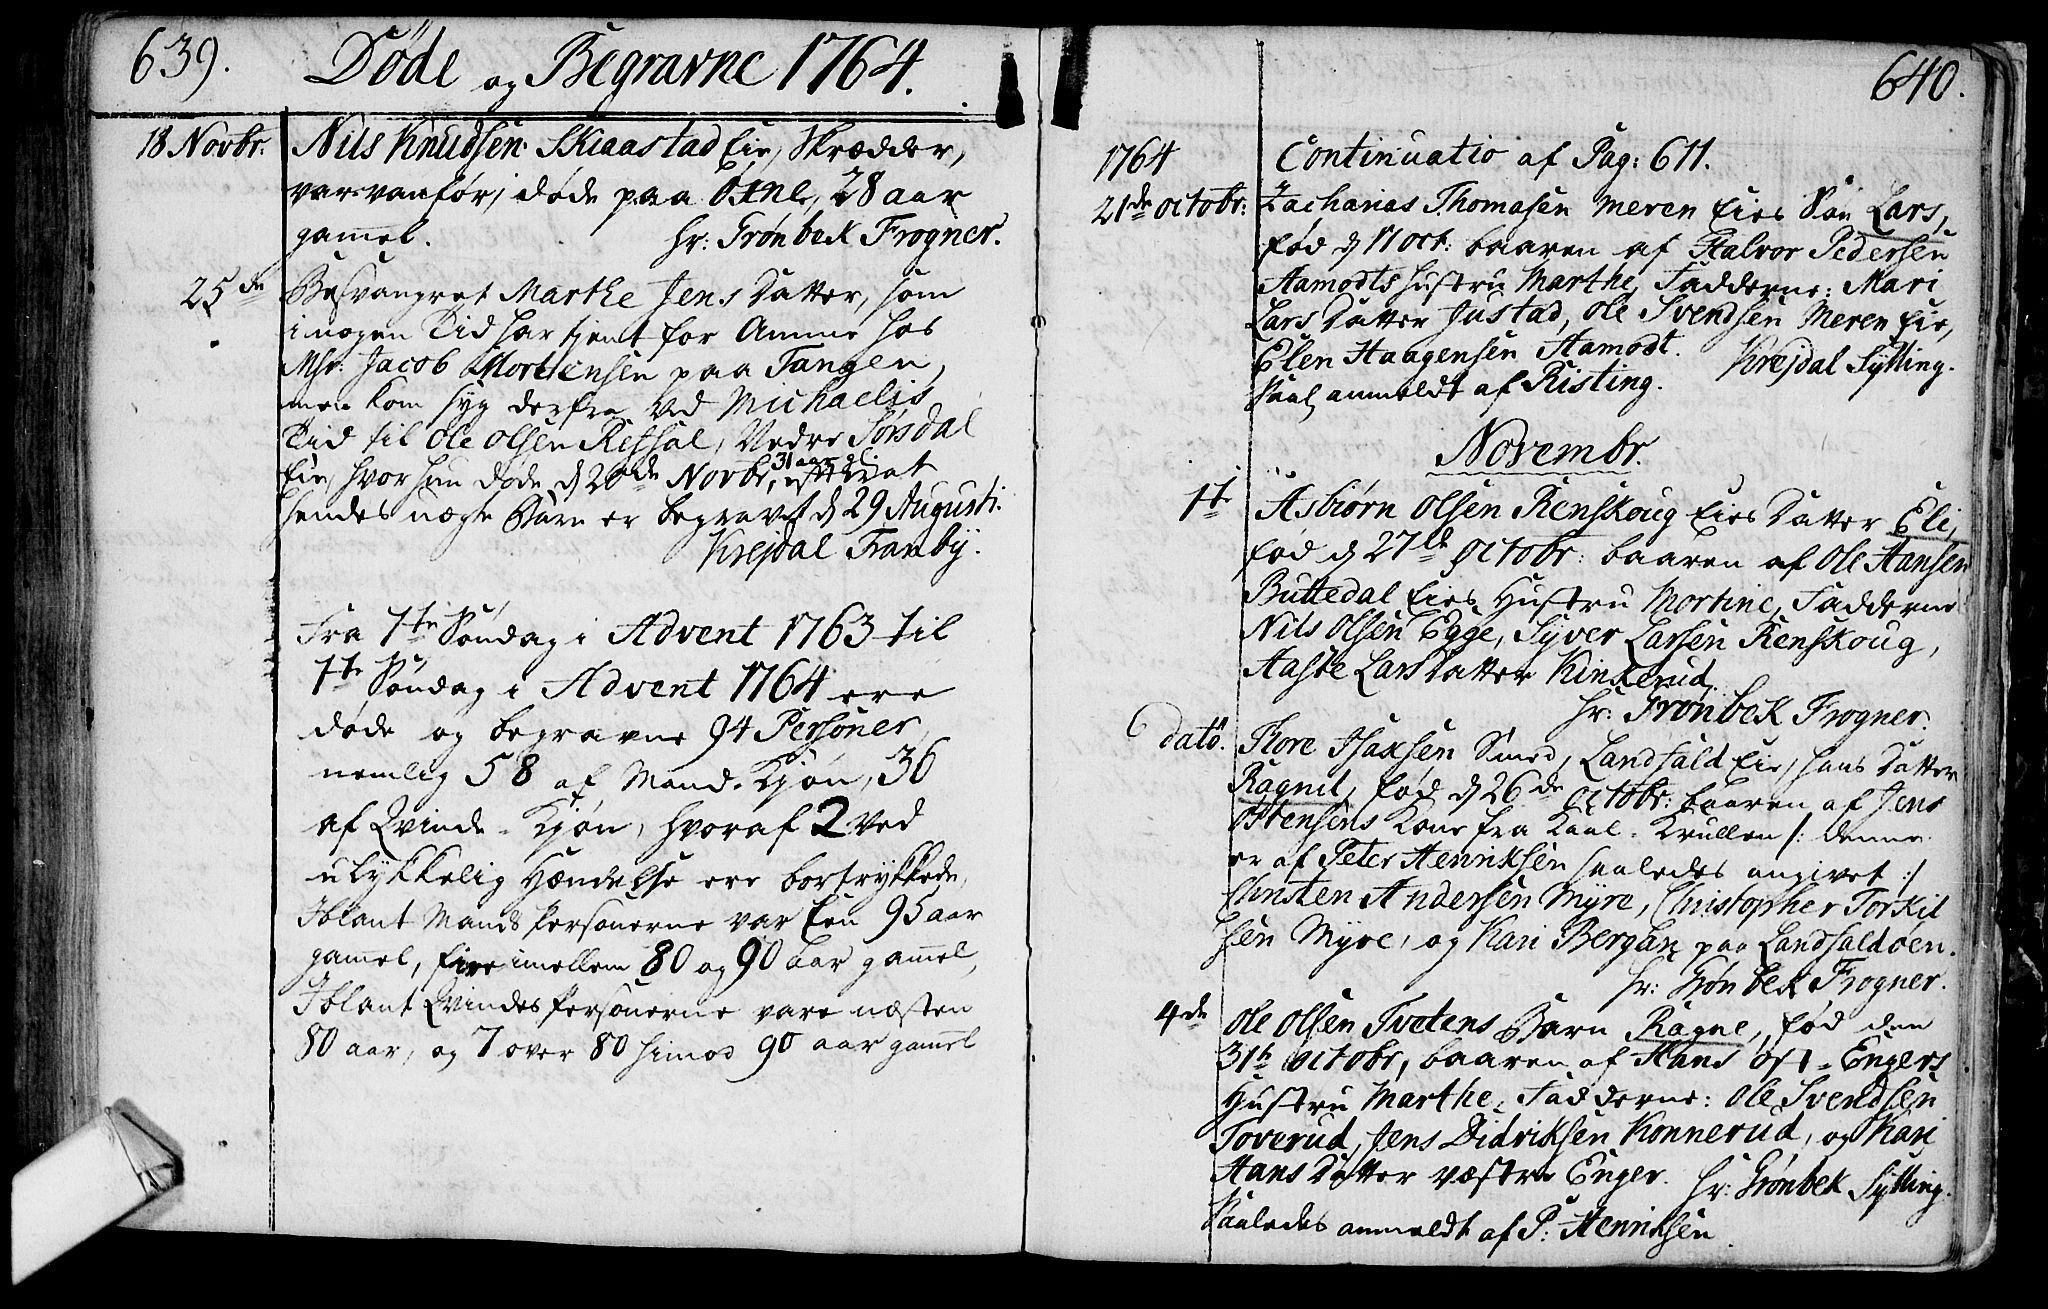 639.
Döde og Begravne 1764.
18 Novbr. Nils Knudsen Skiaastad Eie, Skrædder,
var vanför, döde paa Öxne, 28 aar
gamel. hr: Grönbek Frogner.
25de Besvangret Marthe Jens Datter, som
i nogen Tid har tjent for Amme hos
Msr. Jacob Mortensen paa Tangen,
men kom syg derfra ved Michaelis
Tid til Ole Olsen Refsal, Nedre Sörsdal
Eie, hvor hun döde d 20de Novbr, 31 aar gl. efter at
hendes uægte Barn er begravet d 29 Augusti.
Krejdal Tranby.
Fra 1te Söndag i Advent 1763 til
1te Söndag i Advent 1764 ere
döde og begravne 94 Personer,
nemlig 58 af Mand-Kjön, 36
af Qvinde-Kjön, hvoraf 2 ved
ulykkelig Hændelse ere bortrykkede,
Iblant Mands Personerne var Een 95 aar
gamel, fire imellem 80 og 90 aar gamel,
Iblant Qvindes Personerne vare næsten
80 aar, og 7 over 80 himod 90 aar gamel
640.
1764 Continuatio af Pag: 611.
21de Octobr: Zacharias Thomasen Meren Eies Sön Lars,
föd d 17 Oct: baaren af Halvor Pedersen
Aamodts Hustru Marthe, Fadderne: Mari
Lars Datter Justad, Ole Svendsen Meren Eie,
Elen Haagensen Aamodt. Krejdal Sylling.
Saal. anmeldt af Risting.
Novembr.
1te Asbiörn Olsen Renskoug Eies Datter Eli,
föd d 27de Octobr: baaren af Ole Hansen
Buttedal Eies Hustru Mortine, Fadderne
Nils Olsen Egge, Syver Larsen Renskoug,
Aaste Lars Datter Kinkerud.
hr: Grönbek Frogner.
dato. Tore Isaksen Smed, Landfald Eie, hans Datter
Ragnil, föd d 26de Octobr: baaren af Jens
Östensens Kone fra Kaal-Krullen /: denne
er af Peter Henriksen saaledes angivet :/
Christen Andersen Myre, Christopher Torkil
sen Myre, og Kari Bergan paa Landfaldöen.
hr: Grönbek Frogner.
4de Ole Olsen Tvetens Barn Ragne, föd den
31te Octobr, baaren af Hans Öst-Engers
Hustru Marthe, Fadderne: Ole Svendsen
Toverud, Jens Didriksen Konnerud, og Kari
Hans Datter Væstre Enger. hr: Grönbek Sylling.
Saaledes anmeldt af P: Henriksen.